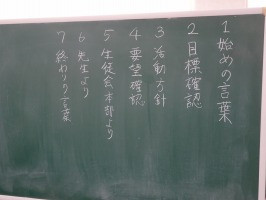 1 始めの言葉
2 目標確認
3 活動方針
4 要望確認
5 生徒会本部より
6 先生より
7 終わりの言葉